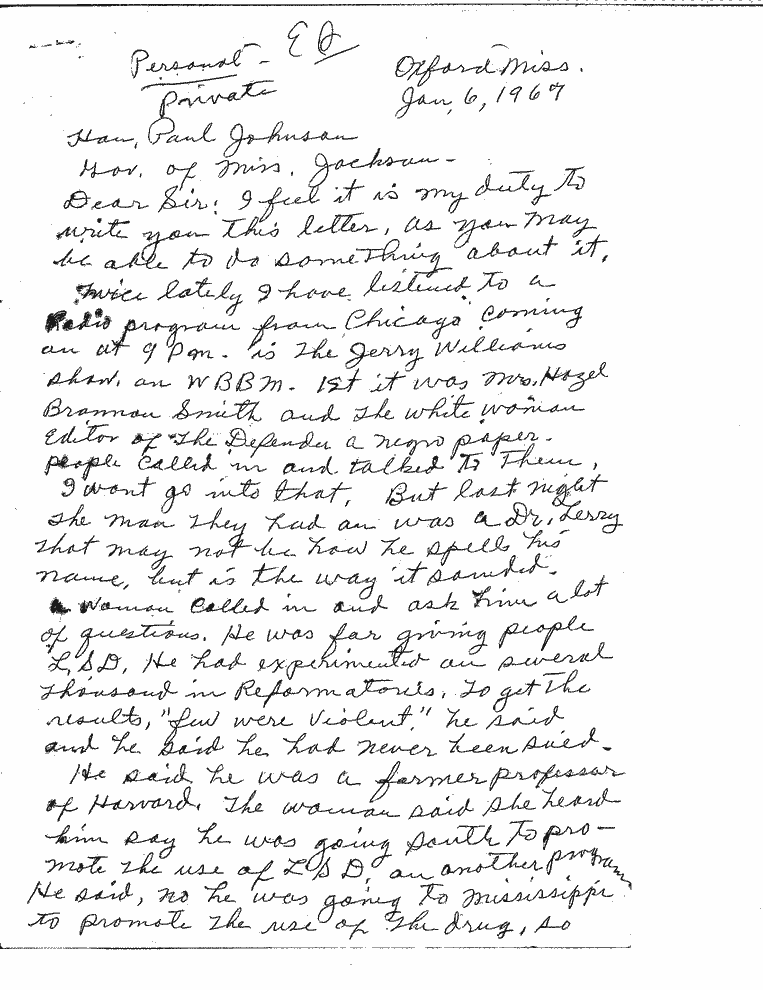 Personal - EJ
Private
Oxford Miss.
Jan, 6, 1967
Hon, Paul Johnson
Gov. of Miss. Jackson -
Dear Sir: I feel it is my duty to
write you this letter, as you may
be able to do something about it.
Twice lately I have listened to a
Radio program from Chicago coming
on at 9 P.m. is the Jerry Williams
show. on WBBM. 1st it was Mrs. Hazel
Brannon Smith and the white woman
Editor of the Defender a negro paper.
people called in and talked to them,
I wont go into that, But last night
the man they had on was a Dr. Lerry
that may not be how he spells his
name, but is the way it sounded.
a woman called in and ask him a lot
of questions. He was for giving people
L,S,D, He had experimented on several
thousand in Reformatories. To get the
results, "few were violent," he said
and he said he had never been sued.
He said he was a former professor
of Harvard. The woman said she heard
him say he was going South to pro-
mote the use of L S D, on another program
He said, no he was going to Mississippi
to promote the use of the drug, so